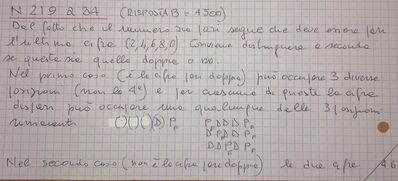 N 219 Q 34 (RISPOSTA B = 4500)
Dal fatto che il numero sia pari segue che deve essere pari
l'ultima cifra (2,4,6,8,0) Conviene distinguere a seconda
se questa sia quella doppia o no.
Nel primo caso (è la cifra pari doppia) può occupare 3 diverse
posizioni (non la 4ª) e per ciascuna di queste la cifra
dispari può occupare una qualunque delle 3 posizioni
rimanenti ( ) ( ) ( ) (D) P P D D D P
D P D D P
D D P D P
Nel secondo caso (non è la cifra pari doppia) le due cifre